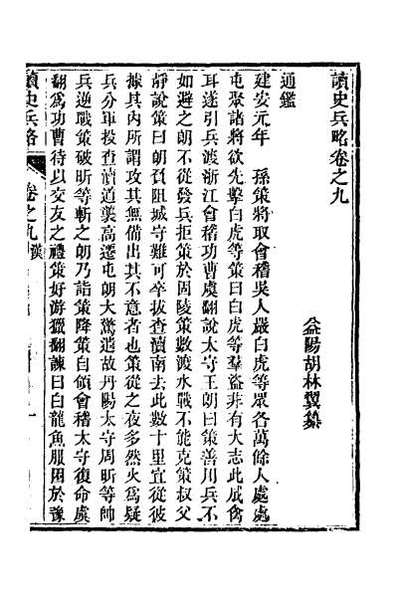 讀史兵略卷之九
益陽胡林翼纂
通鑑
建安元年　孫策將取會稽吳人嚴白虎等眾各萬餘人處處
屯聚諸將欲先擊白虎等策曰白虎等羣盜非有大志此成禽
耳遂引兵渡浙江會稽功曹虞翻說太守王朗曰策善用兵不
如避之朗不從發兵拒策於固陵策數渡水戰不能克策叔父
靜說策曰朗負阻城守難可卒拔查瀆南去此數十里宜從彼
據其內所謂攻其無備出其不意者也策從之夜多然火為疑
兵分軍投查瀆道襲高遷屯朗大驚遣故丹陽太守周昕等帥
兵逆戰策破昕等斬之朗乃詣策降策自領會稽太守復命虞
翻為功曹待以交友之禮策好游獵翻諫曰白龍魚服困於豫
讀史兵略
卷之九
漢